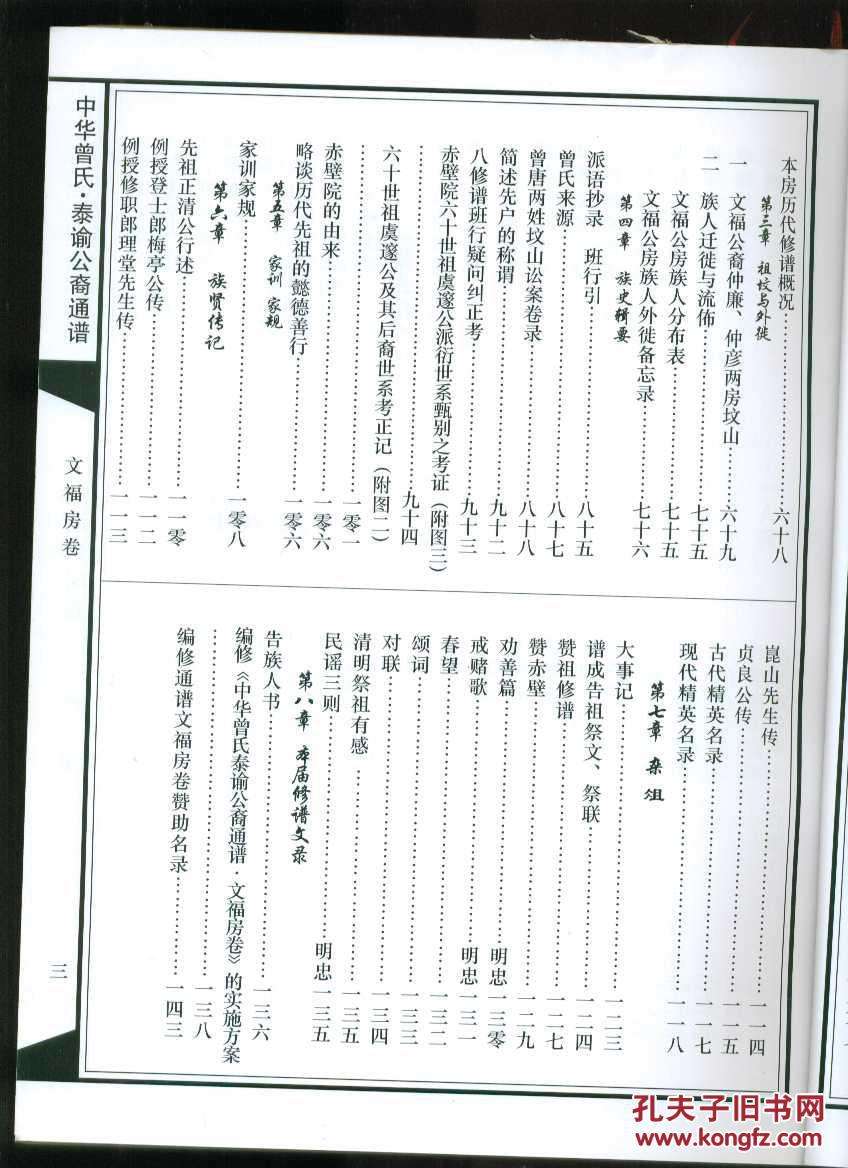 本房历代修谱概况……六十八
第三章 祖坟与外徙
一 文福公裔仲廉、仲彦两房坟山……六十九
二 族人迁徙与流佈……七十五
文福公房族人分布表……七十五
文福公房族人外徙备忘录……七十六
第四章 族史辑要
派语抄录 班行引……八十五
曾氏来源……八十七
曾唐两姓坟山讼案卷录……八十八
简述先户的称谓……九十二
八修谱班行疑问纠正考……九十三
赤壁院六十世祖虞邃公派衍世系甄别之考证（附图三）
……九十四
六十世祖虞邃公及其后裔世系考正记（附图二）
……一零一
赤壁院的由来……一零六
略谈历代先祖的懿德善行……一零六
第五章 家训 家规
家训家规……一零八
第六章 族贤传记
先祖正清公行述……一一零
例授登士郎梅亭公传……一一二
例授修职郎理堂先生传……一一三
崑山先生传……一一四
贞良公传……一一五
古代精英名录……一一七
现代精英名录……一一八
第七章 杂俎
大事记……一二三
谱成告祖祭文、祭联……一二四
赞祖修谱……一二七
赞赤壁……一二九
劝善篇……明忠 一三零
戒赌歌……明忠 一三一
春望……一三二
颂词……一三三
对联……一三四
清明祭祖有感……一三五
民谣三则……明忠 一三五
第八章 本届修谱文录
告族人书……一三六
编修《中华曾氏泰谕公裔通谱·文福房卷》的实施方案
……一三八
编修通谱文福房卷赞助名录……一四三
中华曾氏·泰谕公裔通谱
文福房卷
三
孔夫子旧书网
www.kongfz.com